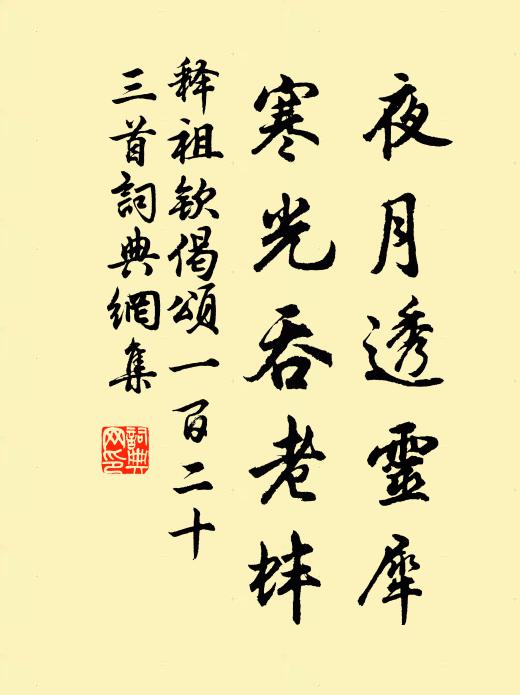 夜月透靈犀
寒光吞老蚌
释祖欽偈頌一百二十
三首詞典網集
詞典
网印